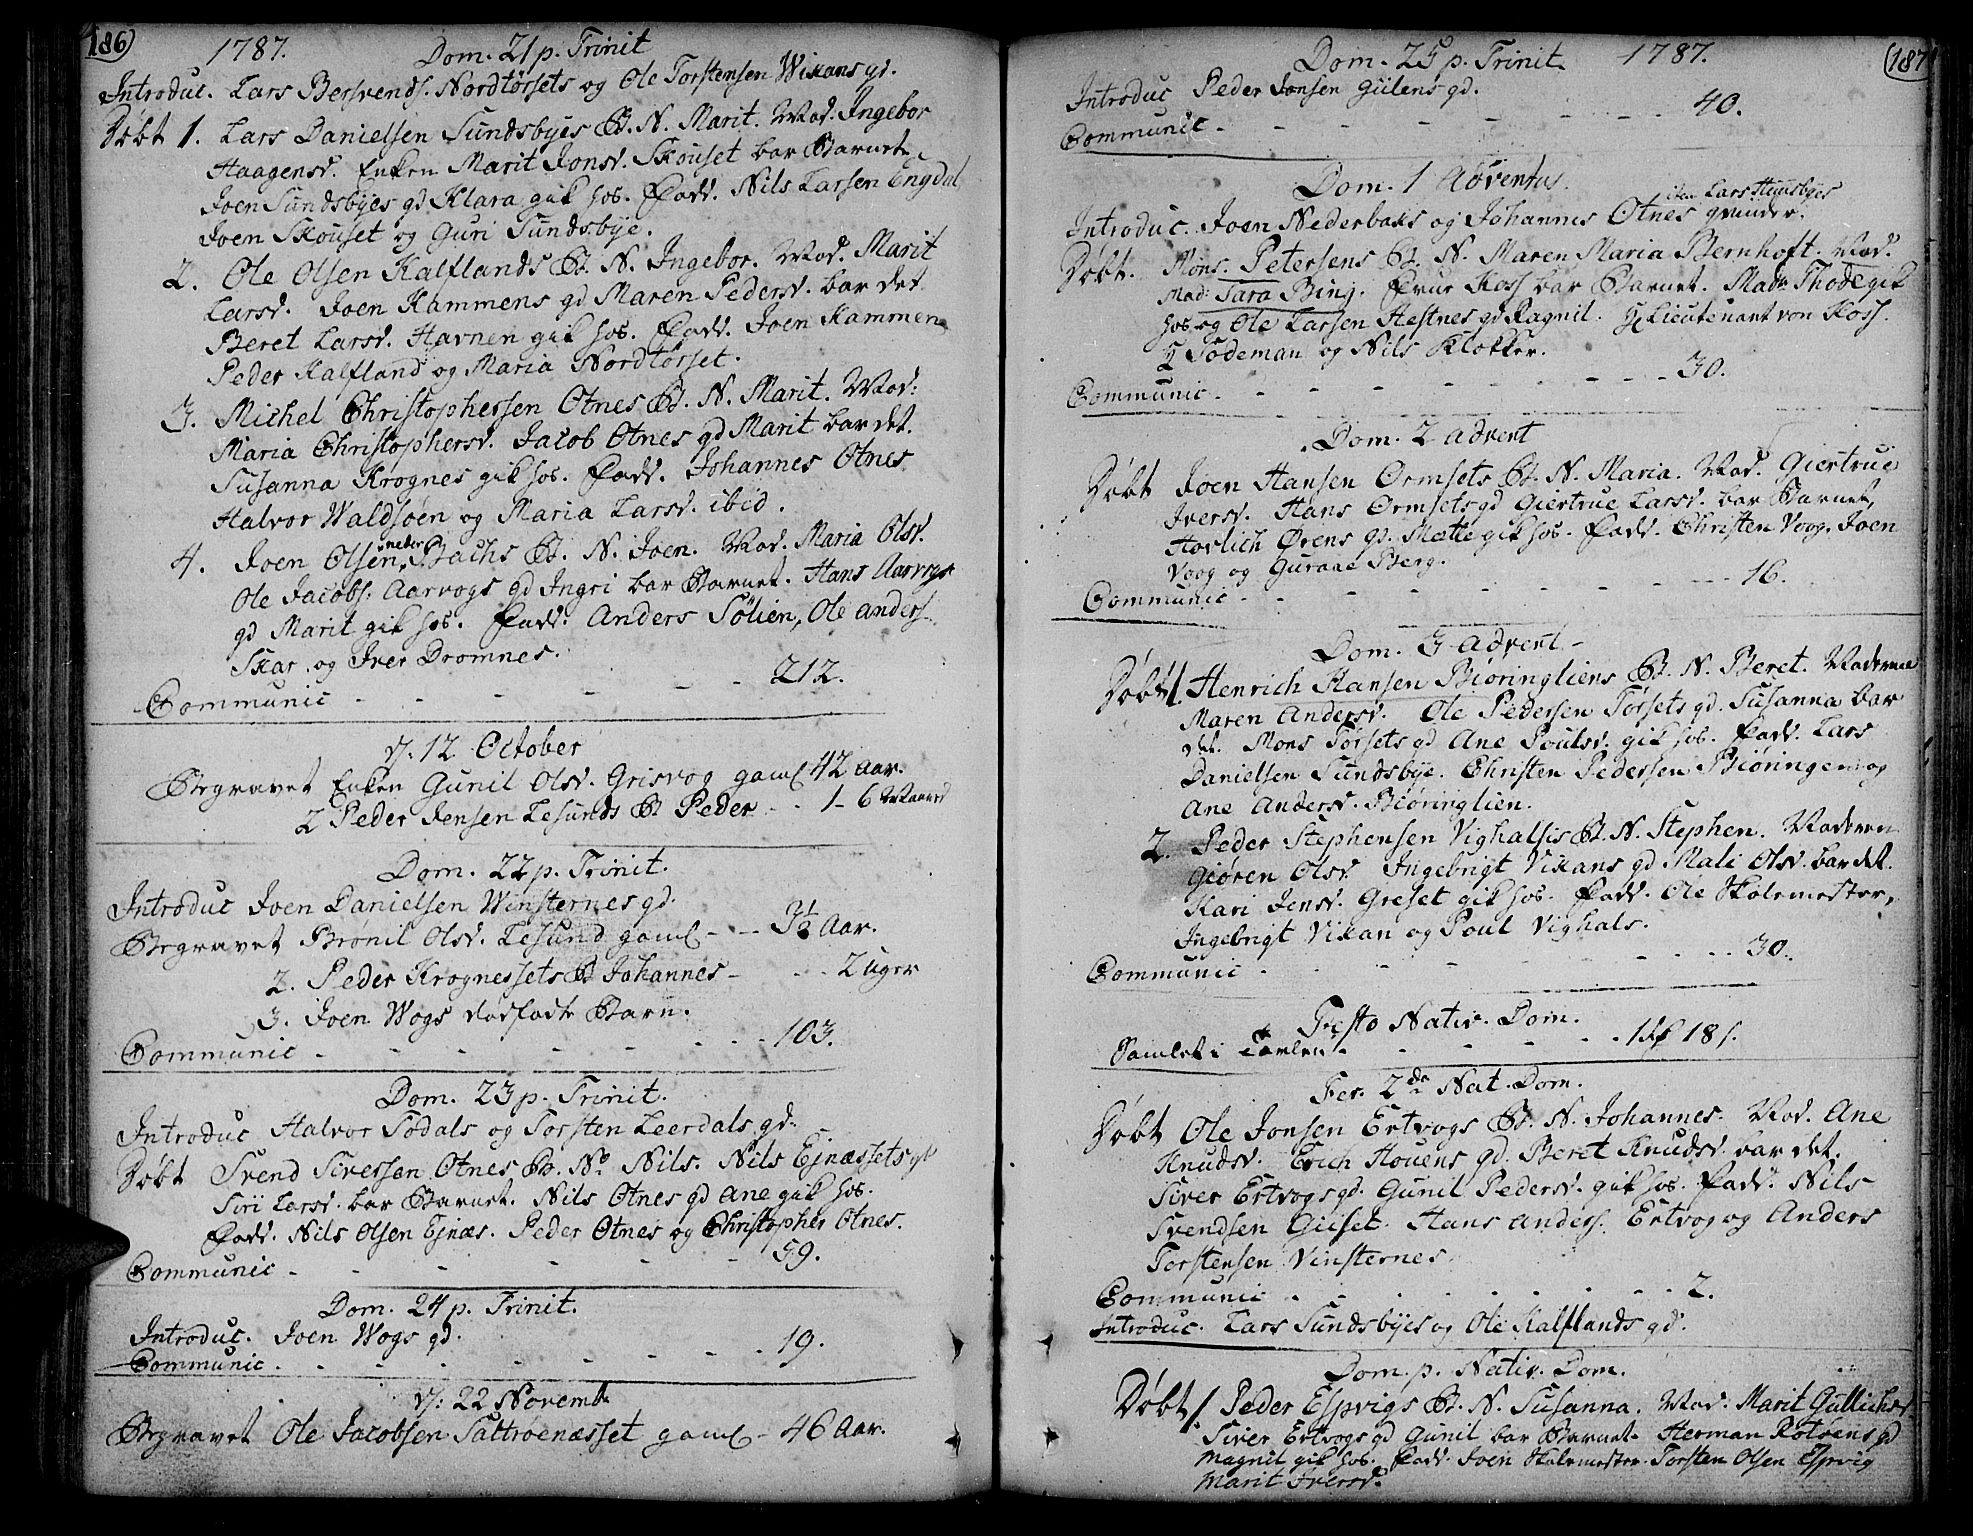 186) 1787. Dom. 21 p. Trinit
Introduc. Lars Bersvends. Nordtørsets og Ole Torstensen Wikans qd.
Døbt 1. Lars Danielsen Sundsbyes B. N. Marit. Mod. Ingebor
Haagensd. Enken Marit Jonsd. Skouset bar Barnet
Joen Sundsbyes qd Klara gik hos. Fadd. Nils Larsen Engdal
Joen Skouset og Guri Sundsbye.
2. Ole Olsen Kalflands B. N. Ingebor. Mod. Marit
Larsd. Joen Kammens qd Maren Pedersd. bar det
Beret Larsd. Havnen gik hos. Fadd. Joen Kammen
Peder Kalfland og Maria Nordtørset.
3. Michel Christophersen Otnes B. N. Marit. Mod:
Maria Christophersd. Jacob Otnes qd Marit bar det.
Susanna Krognes gik hos. Fadd. Johannes Otnes
Halvor Waldsøen og Maria Larsd. ibid.
4. Joen Olsen neder Bachs B. N. Joen. Mod. Maria Olsd.
Ole Jacobs. Aarvogs qd Ingri bar Barnet. Hans Aarvogs
qd Marit gik hos. Fadd. Anders Sølien, Ole Anders.
Skar og Iver Dromnes.
Communic - - - - - 212.
d. 12 October
Begravet Enken Gunil Olsd. Grisvog gaml 42 Aar.
2 Peder Jensen Lesunds B Peder - - 1 - 6 Maaned
Dom. 22 p. Trinit.
Introduc Joen Danielsen Winsternes qd.
Begravet Brønil Olsd. Lesund gaml - - 3½ Aar.
2. Peder Krognessets B Johannes - - - 2 Uger
3. Joen Wogs dødfødte Barn.
Communic - - - - - - - 103.
Dom. 23 p. Trinit.
Introduc Halvor Sødals og Torsten Leerdals qd.
Døbt Svend Siversen Otnes B. N. Nils. Nils Ejnæssets qd
Siri Larsd. bar Barnet. Nils Otnes qd Ane gik hos.
Fadd. Nils Olsen Ejnæs. Peder Otnes og Christopher Otnes.
Communic - - - - - - 59.
Dom. 24 p. Trinit.
Introduc. Joen Wogs qd.
Communic - - - - - - - 19.
d: 22 Novemb
Begravet Ole Jacobsen Sattrøenæsset gaml - 46 Aar.
Dom. 25 p. Trinit. 1787. (187
Introduc Peder Jonsen Gülens qd.
Communic - - - - - - - 40.
Dom. 1 Adventus.
Lars Huusbyes
Introduc. Joen Nederbaks og Johannes Otnes qvinder.
Døbt. Mons. Petersens B. N. Maren Maria Bernhoft. Mod.
Mad: Sara Bing. Frue Koss bar Barnet. Mad. Thode gik
hos og Ole Larsen Hestnes qd Ragnil. Lieutenant von Koss.
Sødeman og Nils Klokker.
Communic - - - - - - - 30.
Dom. 2 Advent
Døbt Joen Hansen Ormsets B. N. Maria. Mod. Giertrue
Iversd. Hans Ormsets qd Giertrue Larsd. bar Barnet,
Hovlich Ørens qd. Mætte gik hos. Fadd. Christen Voog, Joen
Voog og Guraae Berg.
Communic - - - - - - - 16.
Dom. 3 Advent -
Døbt 1. Henrich Hansen Biøringliens B. N. Beret. Moderen
Maren Andersd. Ole Pedersen Tørsets qd. Susanna bar
det. Mons Tørsets qd Ane Poulsd. gik hos. Fadd. Lars
Danielsen Sundsbye. Christen Pedersen Biøringen og
Ane Andersd. Biøringlien.
2. Peder Stephensen Vighalsis B. N. Stephen. Moderen
Giøren Olsd Ingebrigt Vikans qd Mali Olsd. bar det.
Kari Jensd. Greset gik hos. Fadd. Ole Skolemester,
Ingebrigt Vikan og Poul Vighals.
Communic - - - - - - - 30.
Festo Nativ. Dom.
Samlet i Tavlen - - - - - - 18 s.
Fer. 2da Nat. Dom.
Døbt Ole Jonsen Ertvogs B. N. Johannes. Mod. Ane
Knudsd. Erich Hovens qd. Beret Knudsd. bar det.
Siver Ertvogs qd. Gunil Pedersd. gik hos. Fadd. Nils
Svendsen Giiset. Hans Anders. Ertvog og Anders
Torstensen Vinsternes
Communic - - - - - - - 2.
Introduc. Lars Sundsbyes og Ole Kalflands qd.
Dom. p. Nativ. Dom.
Døbt 1. Peder Espvigs B. N. Susanna. Mod. Marit Gullichsd.
Siver Ertvogs qd Gunil bar Barnet. Herman Rotøens qd
Magnil gik hos. Fadd. Joen Skolemester. Torsten Olsen Espvig
Marit Iversd.